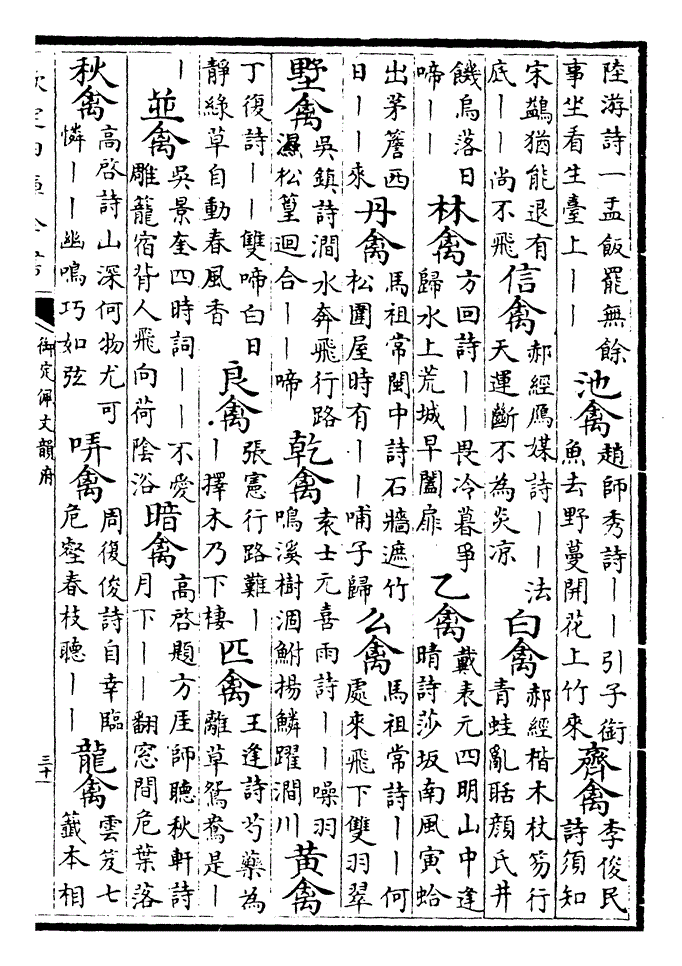 陸游詩一盂飯罷無餘
事坐看生臺上丨丨
池禽
趙師秀詩丨丨引子銜
魚去野蔓開花上竹來
齊禽
李俊民
詩須知
宋鷁猶能退有
底丨丨尚不飛
信禽
郝經鴈媒詩丨丨法
天運斷不為炎凉
白禽
郝經楷木杖笏行
青蛙亂聒顔氏井
饑烏落日
啼丨丨
林禽
方回詩丨丨畏冷暮爭
歸水上荒城早闔扉
乙禽
戴表元四明山中逢
晴詩莎坂南風寅蛤
出茅簷西
日丨丨來
丹禽
馬祖常閩中詩石牆遮竹
松圍屋時有丨丨哺子歸
么禽
馬祖常詩丨丨何
處來飛下雙羽翠
墅禽
吳鎮詩澗水奔飛行路
濕松篁迴合丨丨啼
乾禽
袁士元喜雨詩丨丨噪羽
鳴溪樹涸鮒揚鱗躍澗川
黄禽
丁復詩丨丨雙啼白日
靜綠草自動春風香
良禽
張憲行路難丨
丨擇木乃下棲
匹禽
王逢詩芍藥為
離草鴛鴦是丨
丨
並禽
吳景奎四時詞丨丨不愛
雕籠宿背人飛向荷陰浴
暗禽
高啓題方厓師聽秋軒詩
月下丨丨翻窓間危葉落
秋禽
高啓詩山深何物尤可
憐丨丨幽鳴巧如弦
哢禽
周復俊詩自幸臨
危壑春枝聽丨丨
龍禽
雲笈七
籤本相
欽定四庫全書
御定佩文韻府
三十一